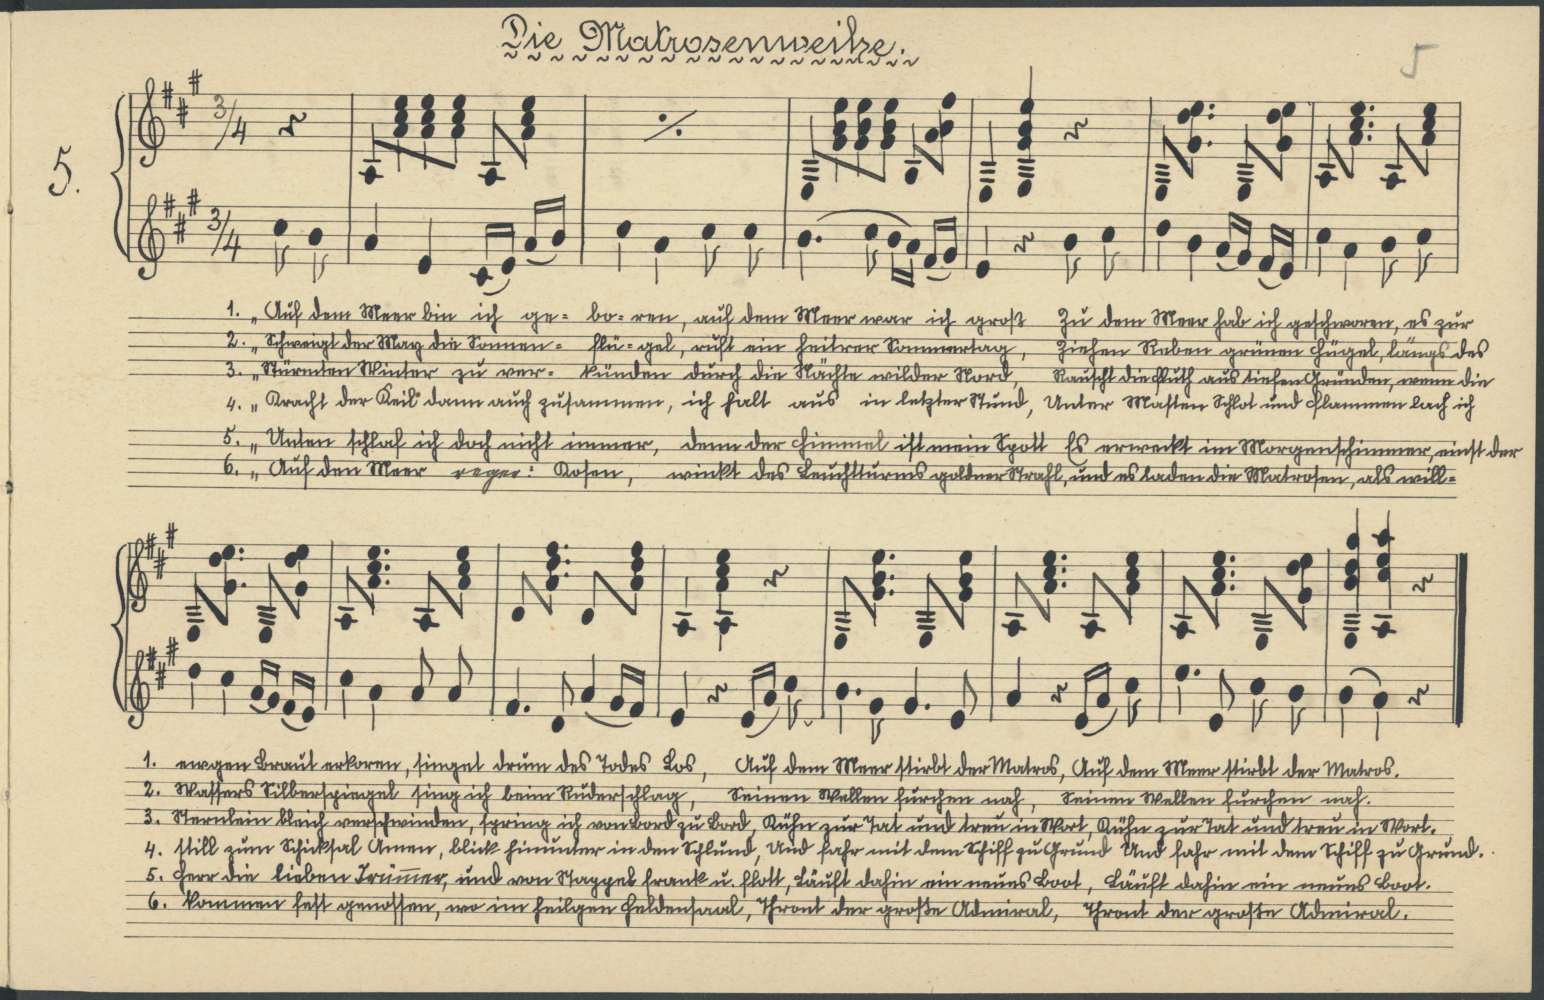 Die Matrosenweihe.
5
5.
3/4
3/4
1. „Auf dem Meer bin ich ge= bo=ren, auf dem Meer war ich groß Zu dem Meer hab ich geschworen, es zur
2. „Schweigt der May die Sonnen= flü=gel, ruft ein heitrer Sommertag, Ziehen Reben grünen Hügel, längs des
3. „Stürmten Winter zu ver= künden durch die Nächte wilder Nord, Rauscht die Fluth aus tiefen Gründen, wenn die
4. „Kracht der Keil dann auch zusammen, ich halt aus in letzter Stund, Unter Masten Schlot und Flammen lach ich
5. „Unten schlaf ich doch nicht immer, denn der Himmel ist mein Spott Es erweckt im Morgenschimmer, einst der
6. „Auf den Meer Kosen, winkt des Leuchtturms goldner Strahl, und es laden die Matrosen, als will=
1. ewgen Braut erkoren, singet drum des Todes Los, Auf dem Meer stirbt der Matros, Auf dem Meer stirbt der Matros.
2. Wassers Silberspiegel sing ich beim Ruderschlag, Seinen Wellen furchen nah, Seinen Wellen furchen nah.
3. Sternlein bleich verschwinden, spring ich von Bord zu Bord, Kühn zur Tat und treu in Wort, Kühn zur Tat und treu in Wort.
4. still zum Schicksal Amen, blick hinunter in den Schlund, Und fahr mit dem Schiff zu Grund Und fahr mit dem Schiff zu Grund.
5. Herr die lieben Trümmer, und von Stappel frank u. flott, Läuft dahin ein neues Boot, Läuft dahin ein neues Boot.
6. kommen fest genossen, wo im heilgen Heldensaal, Thront der große Admiral, Thront der große Admiral.